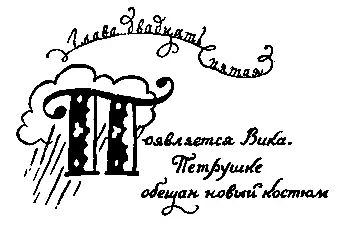 Глава двадцать пятая
Появляется Вика.
Петрушке
обещан новый костюм